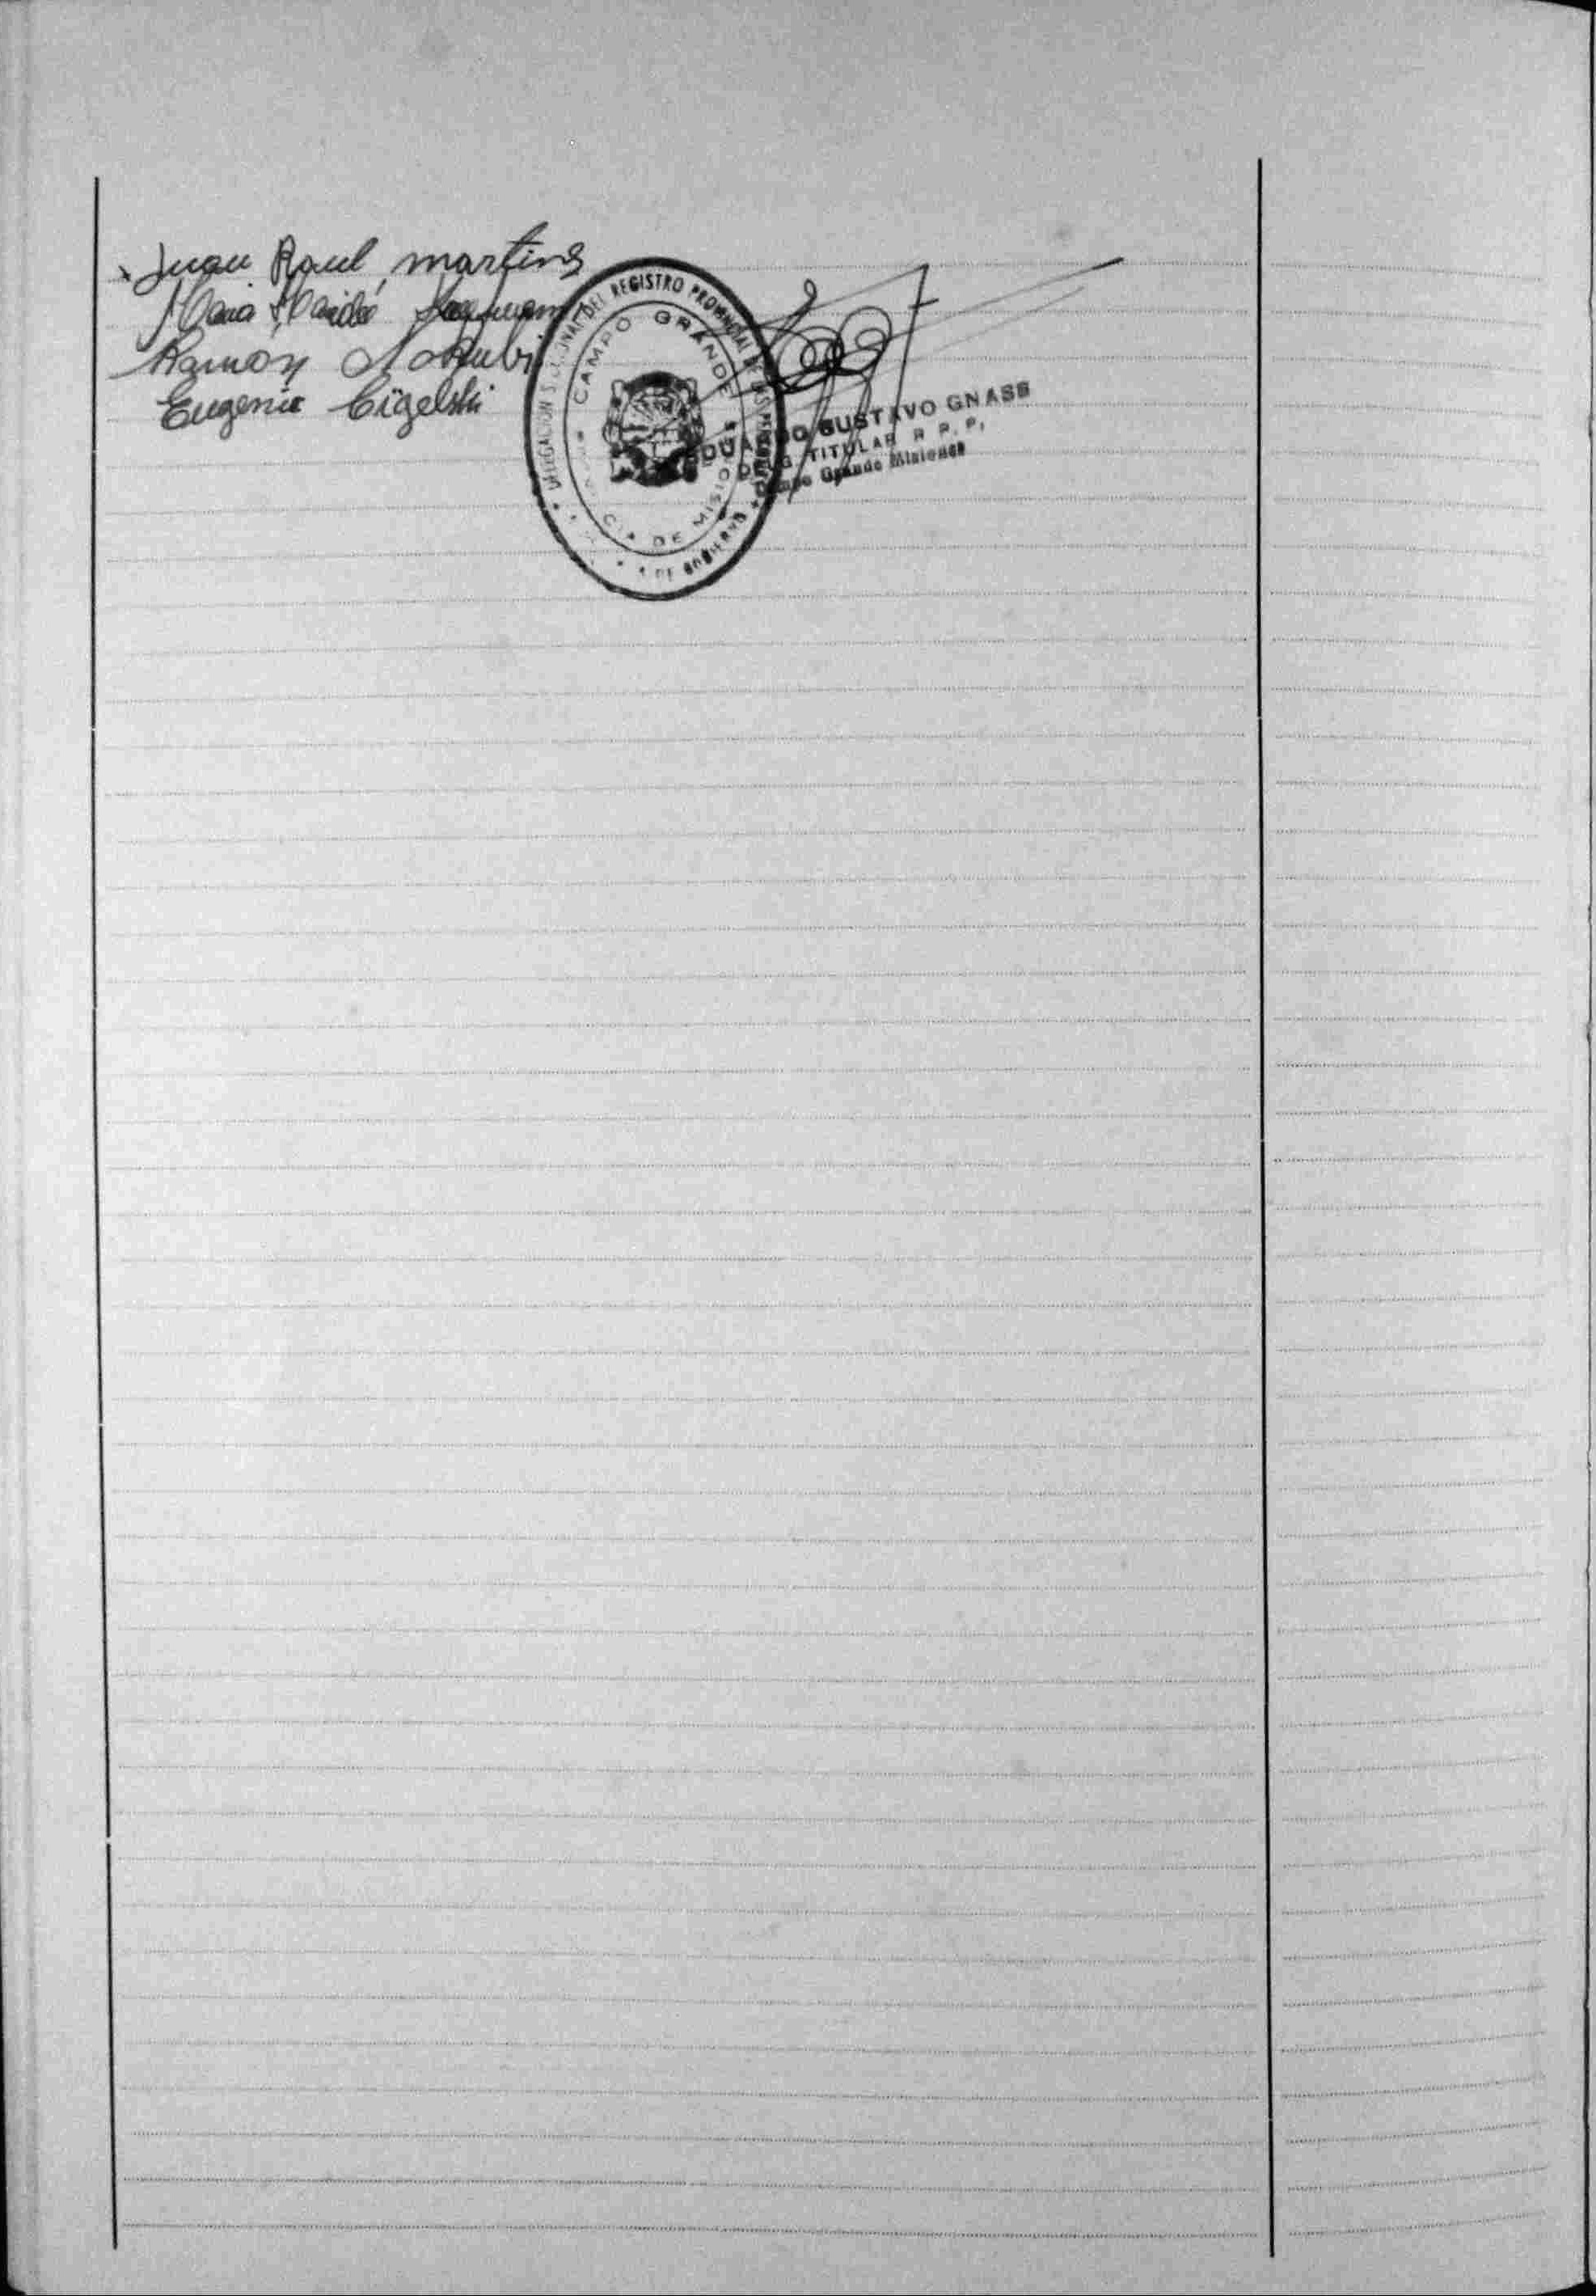 Juan Raul martins
Ramón
Eugenia Cigelski
DELEGACION SECCIONAL DEL REGISTRO PROVINCIAL DE LAS PERSONAS
CAMPO GRANDE
CIA DE MISIONES
DE GOBIERNO
EDUARDO GUSTAVO GNASS
DELEG. TITULAR R. P. P.
Campo Grande Misiones